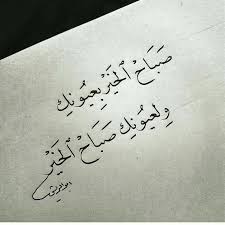 صَبَاحْ ٱلخَيْرِ بِعِيُونِكِ
وِلعِيُونِكِ صَبَاحْ ٱلخَيْر